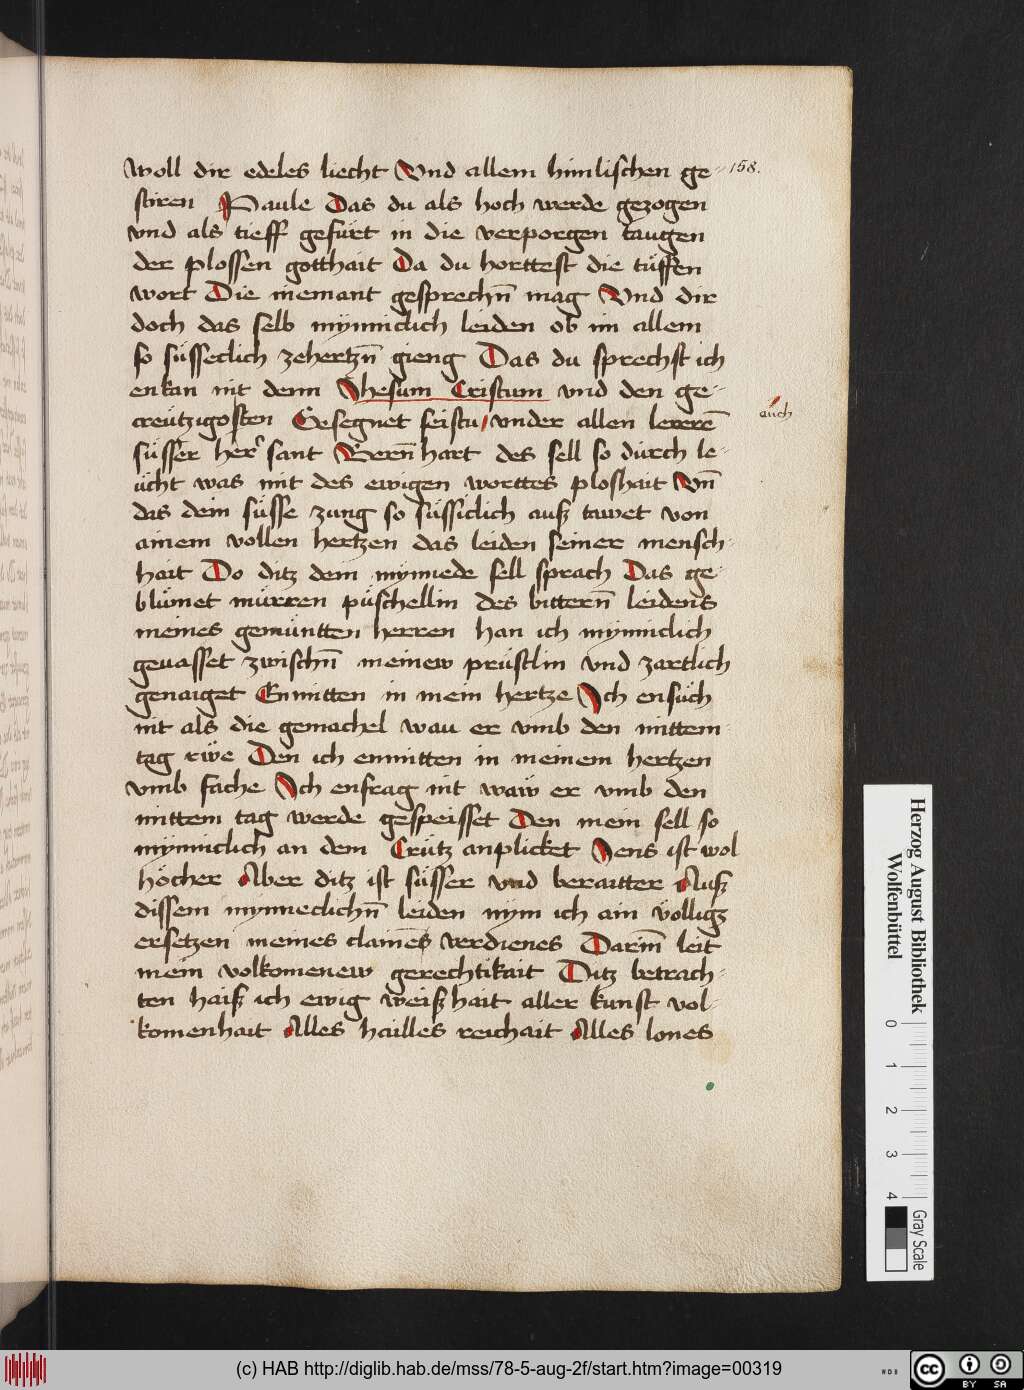 woll dir edeles liecht Vnd allem himlischen ge⸗ 158.
stiren Paule Das du als hoch werde gezogen
vnd als tieff gefürt in die verporgen taugen
der plossen gotthait Da du horttest die tüffen
wort Die niemant gesprechn̄ mag Vnd dir
doch das selb mynniclich leiden ob im allem
so süsseclich zehertzn̄ gieng Das du sprechst ich
enkan nit denn Jhesum Cristum vnd den ge⸗
creützigosten Gesegnet seistu / vnder allen lererē
auch
süsser her sant Bern̄hart des sell so durch le⸗
ücht was mit des ewigen worttes ploshait Vn̄
das dein süsse zung so süssiclich auß tawet von
ainem vollen hertzen das leiden seiner mensch⸗
hait Do ditz dein mynnede sell sprach Das ge⸗
blümet mürren püschellin des bittern̄ leidens
meines gemüntten herren han ich mynniclich
geuasset zwischn̄ meinew prüstlin vnd zartlich
genaiget Enmitten in mein hertze Jch ensüch
nit als die gemachel wau er vmb den mittem⸗
tag rwe Den ich enmitten in meinem hertzen
vmb fache Jch enfrag nit waw er vmb den
mittem tag werde gespeisset Den mein sell so
mynniclich an dem Crütz anplicket Jens ist wol
höcher Aber ditz ist süsser vnd beraitter Auß
dissem mynneclichn̄ leiden nym ich ain völligz
ersetzen meines clainēs verdienes Darin̄ leit
mein volkomenew gerechtikait Ditz betrach⸗
ten haiß ich ewig weißhait aller kunst vol⸗
komenhait Alles hailles reichait Alles lones
Herzog August Bibliothek
Wolfenbüttel
0 1 2 3 4
Gray Scale
(c) HAB http://diglib.hab.de/mss/78-5-aug-2f/start.htm?image=00319
WDB
cc BY SA